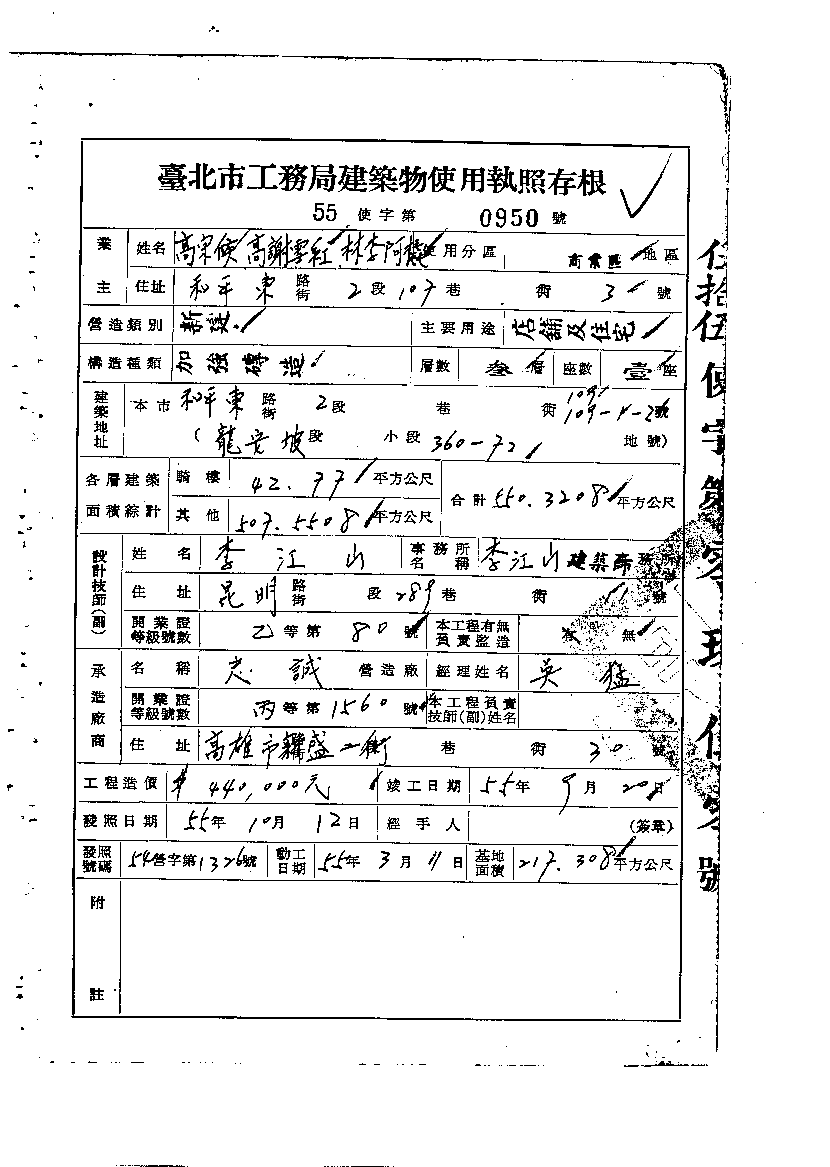 臺北市工務局建築物使用執照存根
55 使字第 0950 號
業主 姓名 高宋 高謝雲紅 林李阿 使用分區 商業區 地區
住址 和平東 路街 2段 107巷 街 3 號
營造類別 新建 主要用途 店舖及住宅
構造種類 加強磚造 層數 叁層 座數 壹座
建築地址 本市 和平東 路街 2段 巷 街 109-1-2號
(龍安坡段 小段 360-72 地號)
各層建築面積綜計 騎樓 42.77 平方公尺 合計 550.3208 平方公尺
其他 507.5508 平方公尺
設計技師(副) 姓名 李江山 事務所名稱 李江山建築師事務所
住址 昆明 路街 段 289巷 街 11號
開業證等級號數 乙等第 80 號 本工程有無負責監造 有 無
承造廠商 名稱 志誠 營造廠 經理姓名 吳猛
開業證等級號數 丙等第 1560 號 本工程負責技師(副)姓名
住址 高雄市 盛一街 巷 街 30 號
工程造價 $ 440,000元 竣工日期 55年 9月 20日
發照日期 55年 10月 12日 經手人 (簽章)
發照號碼 54營字第1326號 動工日期 55年 3月 11日 基地面積 217.308 平方公尺
附註
伍拾伍使字第零玖伍零號